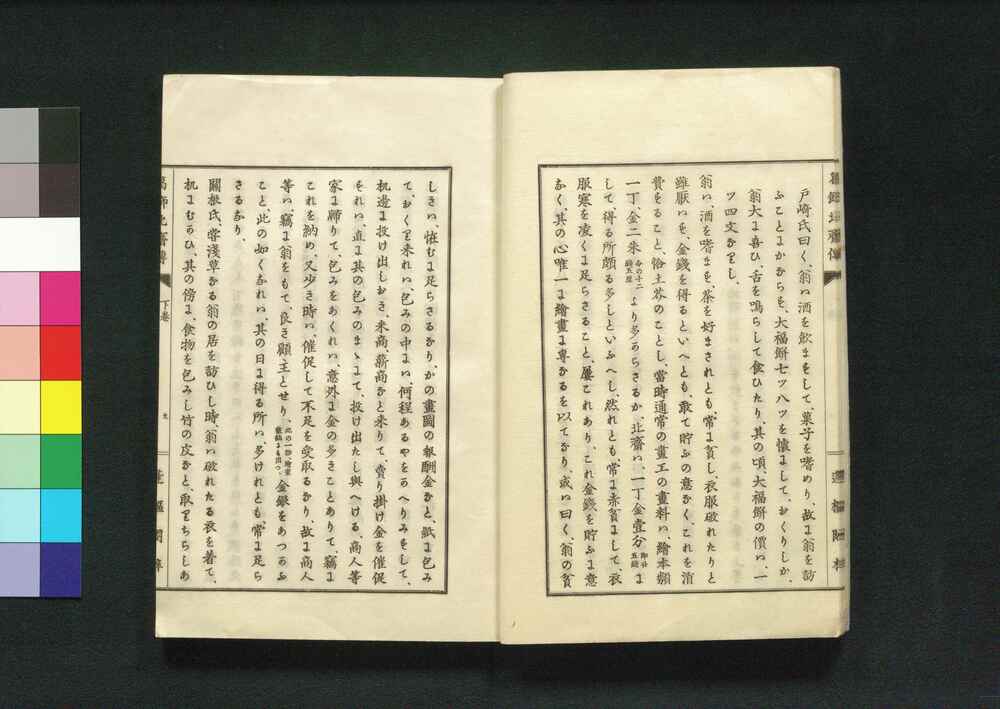 戸崎氏曰く、翁ハ酒を飲まをして、菓子を嗜めり、故ニ翁を訪
ふことよかからを、大福餅七ツハツを懐よして、おくりしか、
翁大よ喜ひ、舌を鳴らして食ひたり、其の頃、大福餅の價ハ、一
ツ四文なりし、
翁ハ、酒を嗜まを、茶を好まされとも、常よ貧し、衣服破れたりと
雖厭ハを、金錢を得るといへとも、敢て貯ふの意なく、これを消
費をること、恰土芥のことし、當時通常の畫工の畫料ハ、繪本類
一丁、金二朱今の十二錢五厘より多からさるか、北齋ハ、一丁金壹分即廿五錢よ
して、得る所頗る多しといふへし、然れとも、常よ赤貧よして、衣
服寒を凌くよ足らさること、屢これあり、これ金錢を貯ふよ意
なく、其の心唯一よ繪畫よ專なるを以てなり、或ハ曰く、翁の貧
しきハ、怪むよ足らさるなり、かの畫圖の報酬金なと、紙よ包み
て、おくり來れハ、包みの中よハ、何程あるやをかへりみをして、
机邊よ投け出しおき、米商薪商なと來りて、賣り掛け金を催促
をれハ、直よ其の包みのまゝよて、投け出たし與へける、商人等
家よ歸りて、包みをあくれハ、意外よ金の多きことありて、竊よ
これを納め、又少き時ハ、催促して不足を受取るなり、故よ商人
等ハ、竊よ翁をもて、良き顧主とせり、金銀をあつかふ
こと、此の如くなれハ、其の日よ得る所ハ、多けれとも、常よ足ら
さるなり、
關根氏、嘗淺草なる翁の居を訪ひし時、翁ハ破れたる衣を着て、
机よむかひ、其の傍よ、食物を包みし竹の皮なと、取りちらしあ
下卷